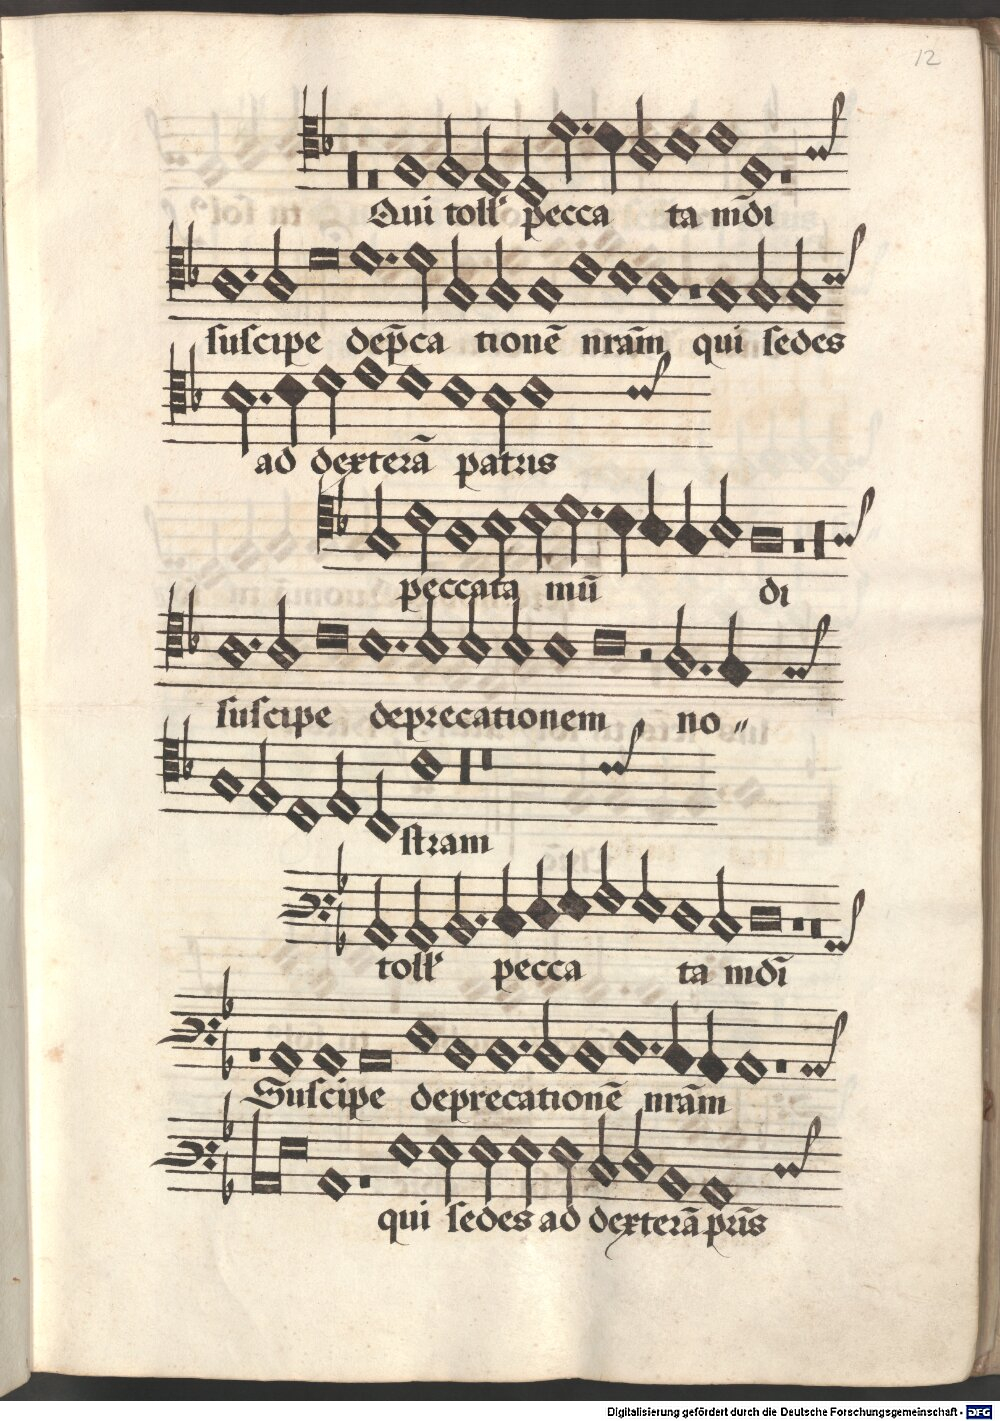 12
Qui toll' pecca ta mdi
suscipe dep̄ca tionē nrām qui sedes
ad dexterā patris
peccata mū di
suscipe deprecationem no„
stram
toll' pecca ta mdī
Suscipe deprecationē nrām
qui sedes ad dexterā pris
Digitalisierung gefördert durch die Deutsche Forschungsgemeinschaft - DFG